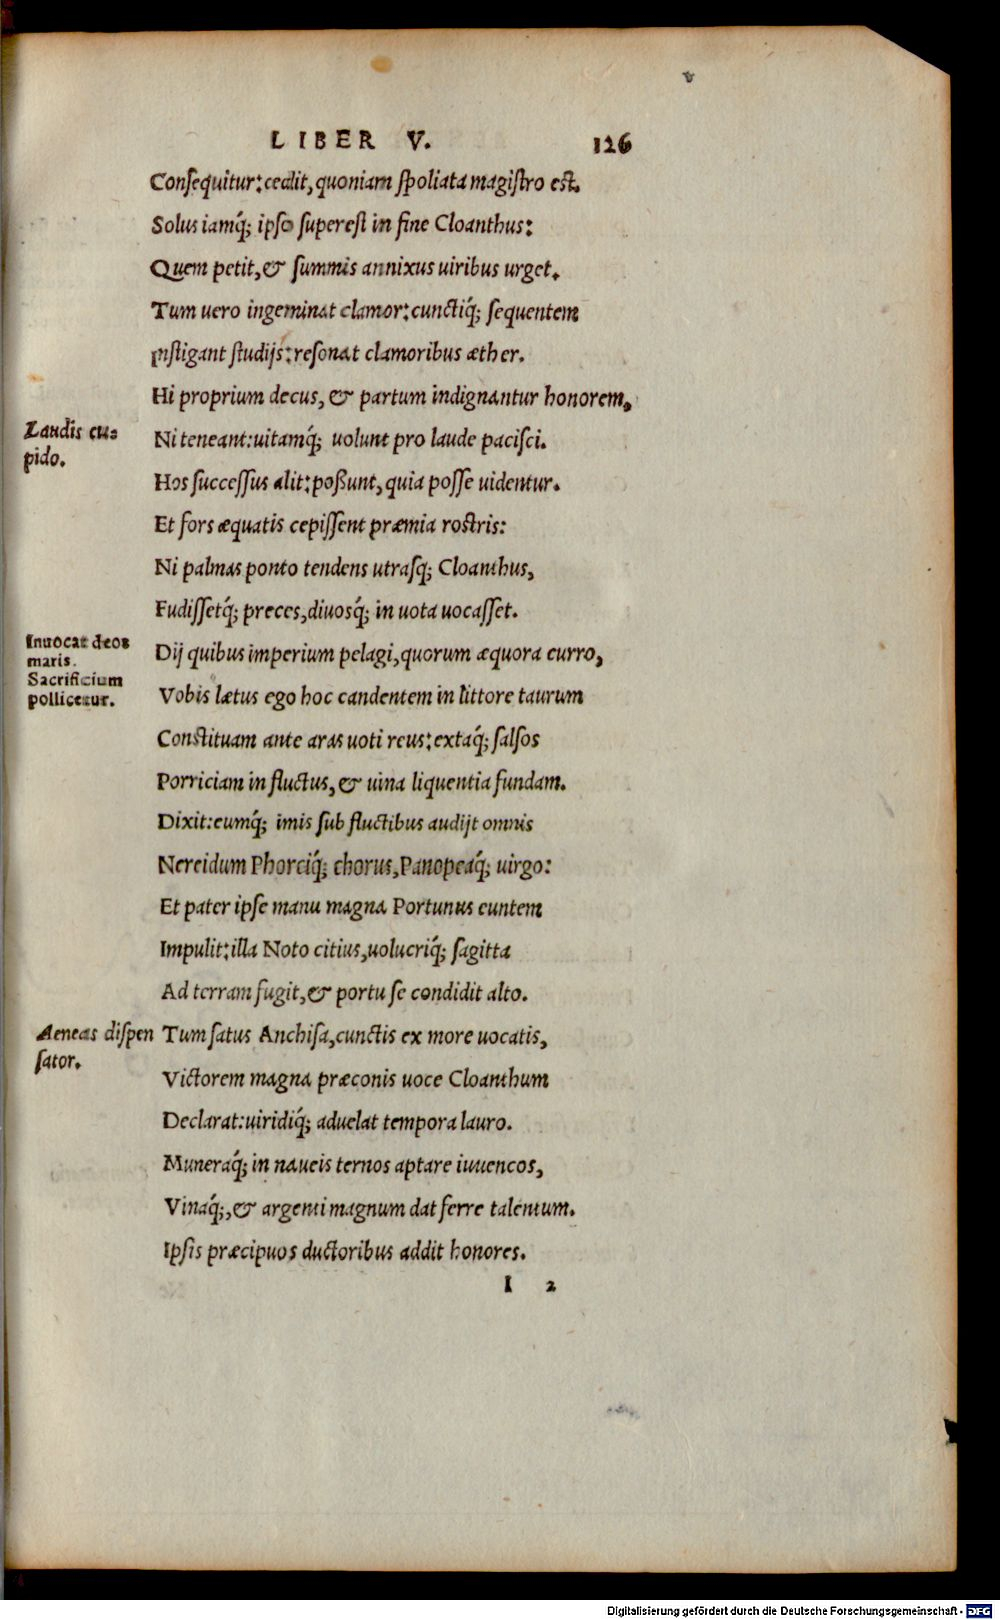 LIBER V. 126
Consequitur: cedit, quoniam spoliata magistro est.
Solus iamq́; ipso superest in fine Cloanthus:
Quem petit, & summis annixus uiribus urget.
Tum uero ingeminat clamor: cunctiq́; sequentem
Instigant studijs: resonat clamoribus æther.
Hi proprium decus, & partum indignantur honorem,
Laudis cu=
pido.
Ni teneant: uitamq́; uolunt pro laude pacisci.
Hos successus alit: possunt, quia posse uidentur.
Et fors æquatis cepissent præmia rostris:
Ni palmas ponto tendens utrasq; Cloanthus,
Fudissetq́; preces, diuosq́; in uota uocasset.
Inuocat deos
maris.
Sacrificium
pollicetur.
Dij quibus imperium pelagi, quorum æquora curro,
Vobis lætus ego hoc candentem in littore taurum
Constituam ante aras uoti reus: extaq́; salsos
Porriciam in fluctus, & uina liquentia fundam.
Dixit: eumq́; imis sub fluctibus audijt omnis
Nereidum Phorciq́; chorus, Panopeaq́; uirgo:
Et pater ipse manu magna Portunus euntem
Impulit: illa Noto citius, uolucriq́; sagitta
Ad terram fugit, & portu se condidit alto.
Aeneas dispen
sator.
Tum satus Anchisa, cunctis ex more uocatis,
Victorem magna præconis uoce Cloanthum
Declarat: uiridiq́; aduelat tempora lauro.
Muneraq́; in naueis ternos aptare iuuencos,
Vinaq́;, & argenti magnum dat ferre talentum.
Ipsis præcipuos ductoribus addit honores.
I 2
Digitalisierung gefördert durch die Deutsche Forschungsgemeinschaft - DFG